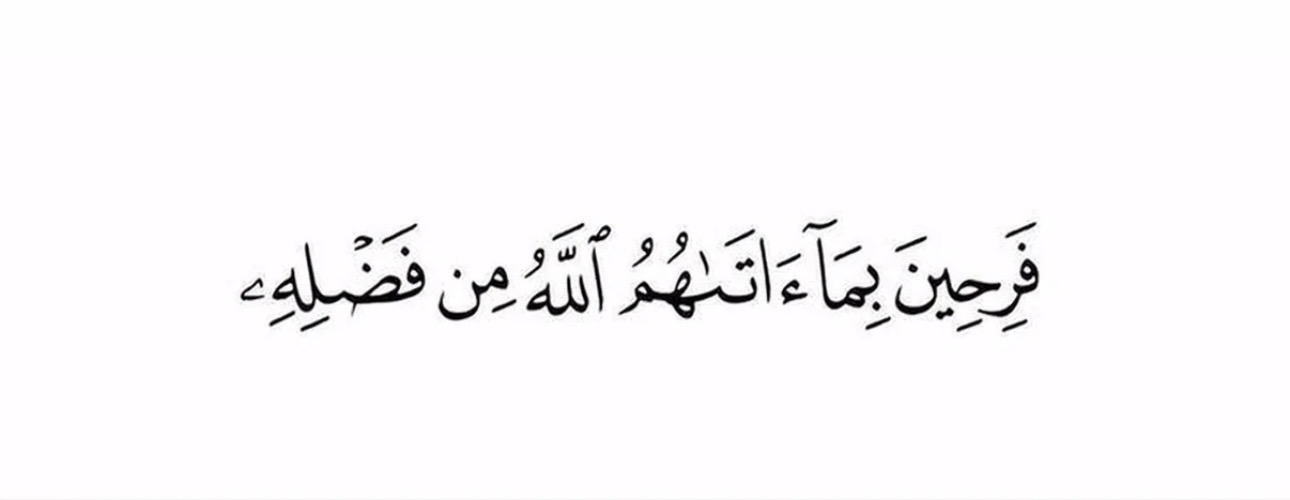 فَرِحِينَ بِمَآ ءَاتَىٰهُمُ ٱللَّهُ مِن فَضۡلِهِۦ